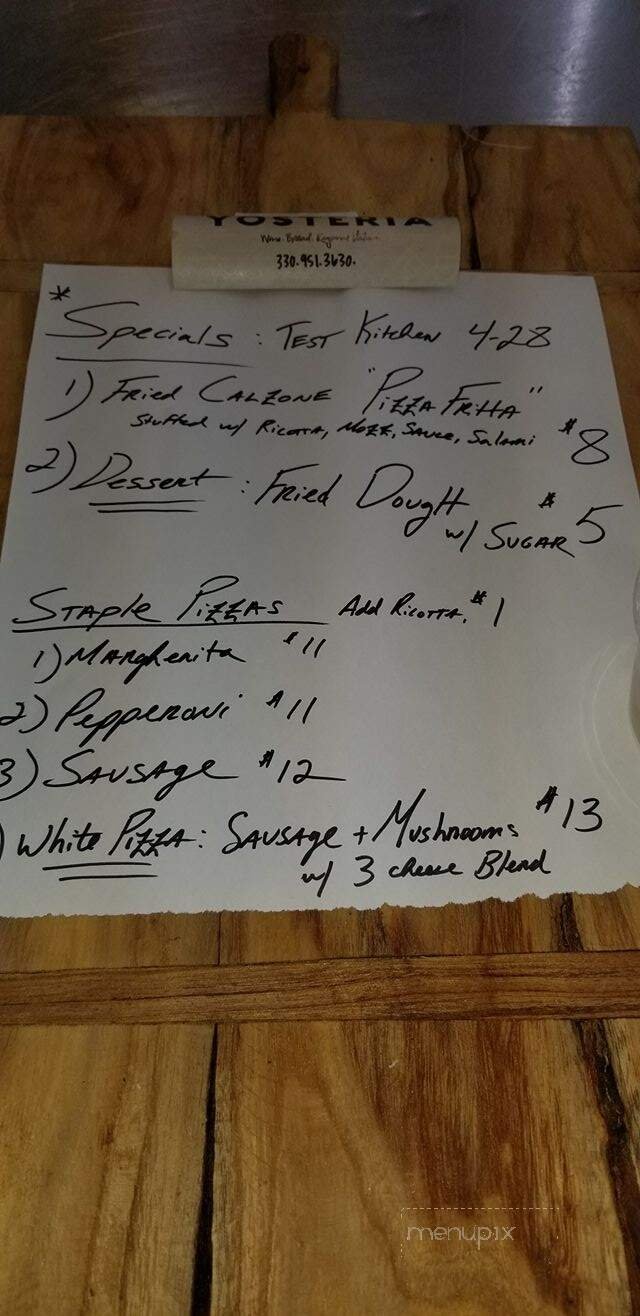 YOSTERIA
330.951.3630.
*
Specials: TEST Kitchen 4-28
1) FRIED CALZONE "PIZZA FRITTA"
Stuffed w/ RICOTTA, MOZZ, SAUCE, Salami $8
2) Dessert: FRIED DOUGH $5
w/ SUGAR
STAPLE PIZZAS Add RICOTTA, $1
1) MARGherita $11
2) Pepperoni $11
3) SAUSAGE $12
) White PIZZA: SAUSAGE + Mushrooms $13
w/ 3 cheese Blend
menupix